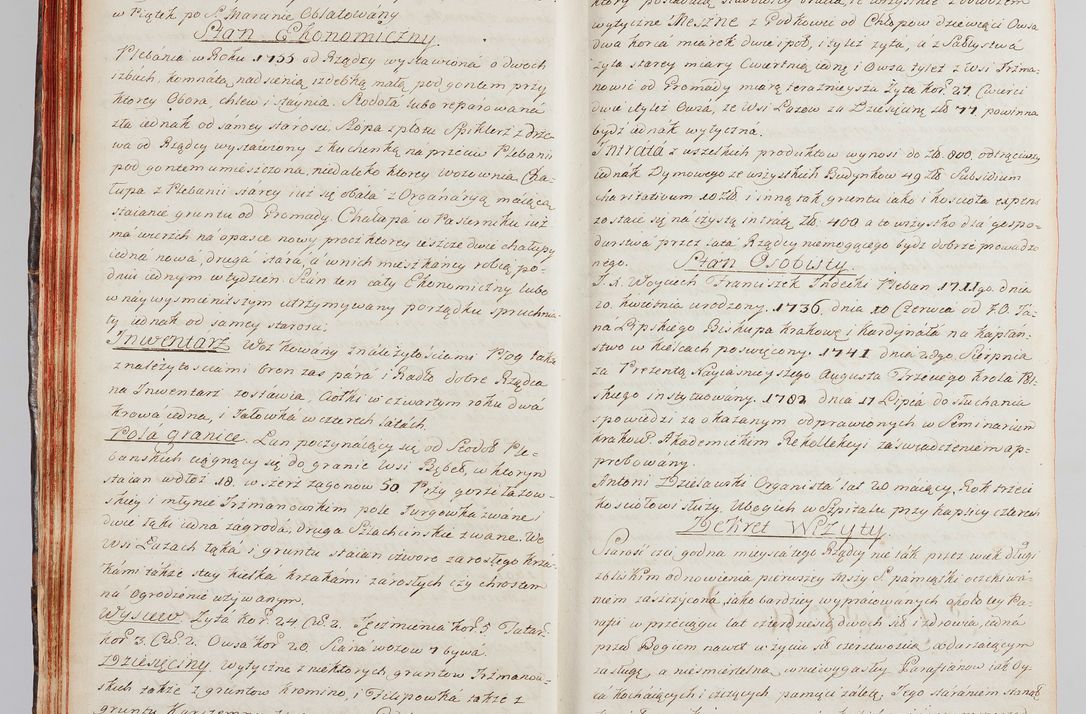 w Piątek po S. Marcinie Oblatowany
Stan Ekonomiczny.
Plebania w Roku 1755 od Rządcy wystawiona o dwoch
izbach, komnatą, nad sienią izdebką małą pod gontem przy
ktorey Obora, chlew i staynia. Stodoła lubo reparowana
zła iednak od samey starosci, Szopa z płotu Spiklerz z drze-
wa od Rządcy wystawiony z kuchenką na przeciw Plebanii
pod gontem umieszczona, niedaleko ktorey wozownia Cha-
łupa z Plebanii starey iuż się obala z Organaryą maiącą
staianie gruntu od Gromady. Chałupa w Pastewniku iuż
ma wierzch na opasce nowy procz ktorey ieszcze dwie chałupy
iedna nowa, druga stara, a w nich mieszkańcy robią po-
dniu iednym w tydzień. Stan ten cały Ekonomiczny lubo
w naywysmienitszym utrzymywany porządku spruchnia-
ły iednak od samey starosci.
Inwentarz Woz kowany z należytosciami Pług także
z należytosciami bron zas para i Radło dobre Rządca
na Inwentarz zostawia, Ciołki w czwartym roku dwa
krowa iedna, i Jałowka w czterech latach.
Pola granice. Łan poczynaiący się od Stodoł Ple-
banskich ciągnący się do granic Wsi Bębeł, w ktorym
staian wdłoż 18. w szerż zagonow 50. Przy gorze Łazow-
skiey i młynie Trzmanowskim pole Jurgowka zwane i
dwie łąki iedna zagroda, druga Szlachcinskie zwane. We
Wsi Łazach łąka i gruntu staian czworo zarosłego krza-
kami także stay kielka krzakami zarosłych czy chrostem
na ogrodzenie używanym.
Wysiew. Żyta kor. 24 Ćw. 2. Jęczmienia kor. 5. Tatar.
kor. 3. Ćw. 2. Owsa kor. 20. Siana wozow 7 bywa.
Dziesięciny wytyczne z niektorych gruntow Trzmanow-
skich także z gruntow kromino i Filipowka także z
wytyczne Meszne z Podkowic od Chłopow dziewięci Owsa
dwa korca miarek dwie i poł, i tyleż żyta, a z Sąbłystwa
żyta starey miary Cwiertnią iedną i Owsa tyleż z Wsi Trzma-
nowic od Gromady miarą terazniejszą Żyta kor. 27. Cwierci
dwie i tyleż Owsa, ze Wsi Łazow za Dziesięcinę zł. 77. powinna
bydź iednak wytyczna.
Intrata z wszelkich produktow wynosi do zł. 800. odtrąciwszy
iednak Dymowego ze wszystkich Budynkow 49 zł. Subsidium
charitativum 20 zł. i inną tak gruntu iako i kosciola expens
zostaie się na czystą intratę zł. 400 a to wszystko dla gospo-
darstwa przez lata Rządcy niemogącego bydź dobrze prowadzo-
nego. Stan Osobisty.
J. X. Woyciech Franciszek Indecki Pleban 1711go. dnia
20. kwietnia urodzony. 1736. dnia 10 Czerwca od J. O. Ja-
na Lipskiego Biskupa Krakowᵍ i Kardynała na kapłań-
stwo w Kielcach poswięcony. 1741 dnia 28go. Sierpnia
za Prezentą Nayiasnieyszego Augusta Trzeciego krola Pol-
skiego instytuowany. 1782 dnia 17 Lipca do słuchania
spowiedzi za okazanym odprawionych w Seminarium
krakow. Akademickim Rekollekcyi zaswiadczeniem ap-
probowany.
Antoni Dzielawski Organista lat 20 maiący, Rok trzeci
kosciołowi służy. Ubogich w Szpitalu przy kaplicy czterech
Dekret Wizyty.
Starosć czci godna mieysca tego Rządcy nie tak przez wiek długi
z bliskim odnowienia pierwszey Mszy S. pamiątki oczekiwa-
niem zaszczycona, iako bardziey wypracowanych około tey Pa-
rafii w przeciągu lat czterdziestu dwoch sił i zdrowia iedna
przed Bogiem nawet w życiu sił czerstwością odarzaiącym
zasługę, a niesmiertelną, w niewygasłey Parafianow iak Oy-
ca kochaiących i czczących pamięci zaletę, Jego staraniem stanął